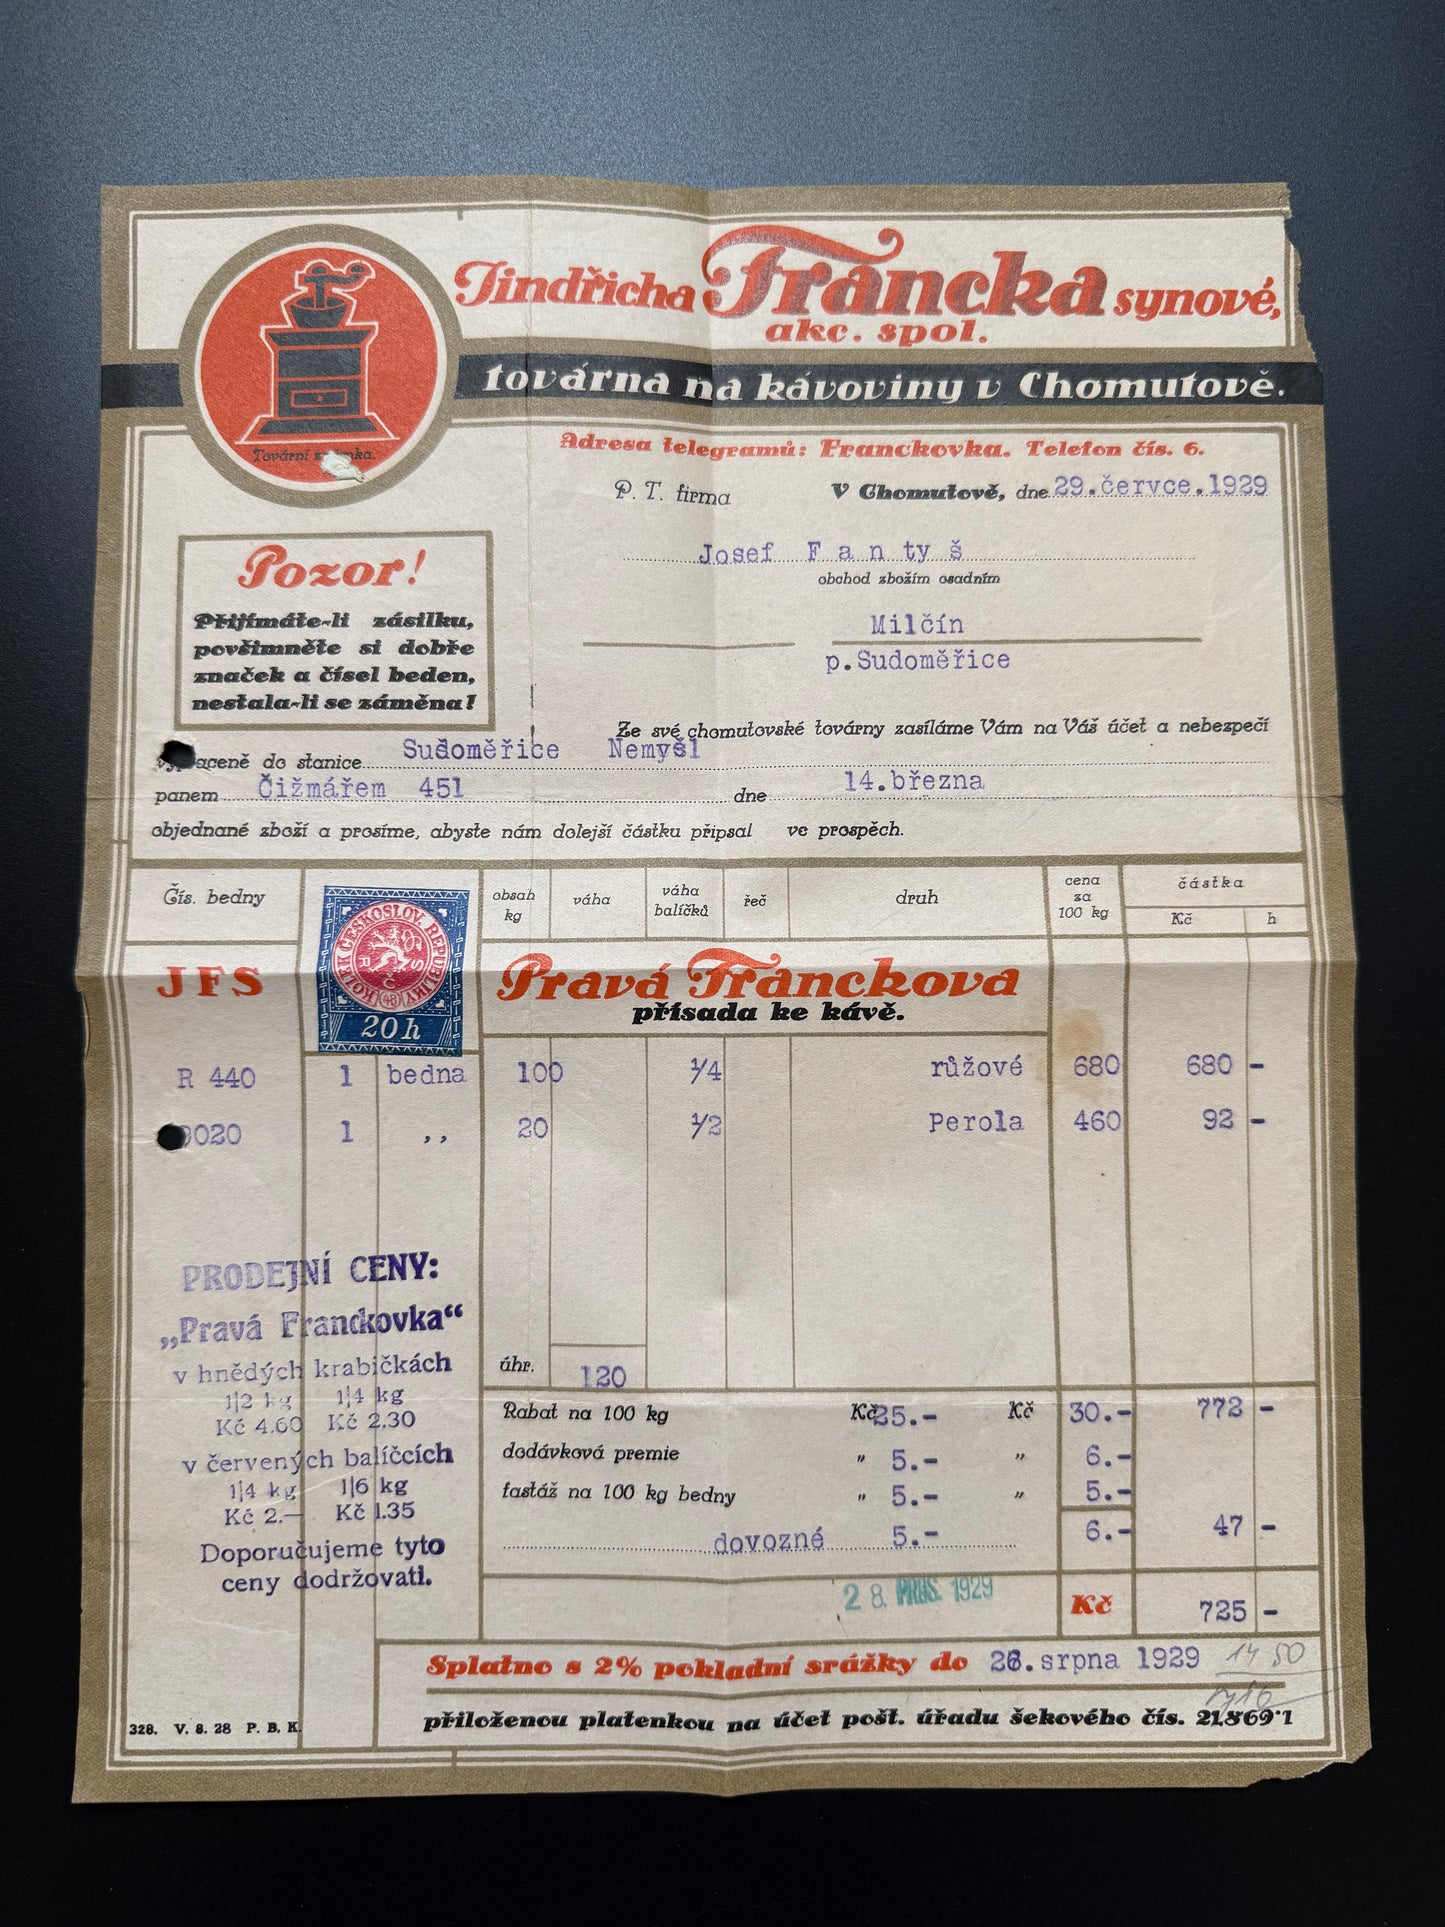 Jindřicha Francka synové,
akc. spol.
továrna na kávoviny v Chomutově.
Tovární
Adresa telegramů: Franckovka. Telefon čís. 6.
P. T. firma V Chomutově, dne 29.července.1929
Josef Fantyš
obchod zbožím osadním
Milčín
p.Sudoměřice
Pozor!
Přijímáte-li zásilku,
povšimněte si dobře
značek a čísel beden,
nestala-li se záměna!
Ze své chomutovské továrny zasíláme Vám na Váš účet a nebezpečí
do stanice Sudoměřice Nemyšl
panem Čižmářem 451 dne 14.března
objednané zboží a prosíme, abyste nám dolejší částku připsal ve prospěch.
Čís. bedny obsah kg váha váha balíčků řeč druh cena za 100 kg částka Kč h
KOLEK ČESKOSLOV. REPUBLIKY
R Č S
20 h
JFS Pravá Franckova
přísada ke kávě.
R 440 1 bedna 100 1/4 růžové 680 680 -
9020 1 ,, 20 1/2 Perola 460 92 -
PRODEJNÍ CENY:
„Pravá Franckovka“
v hnědých krabičkách
1|2 kg 1|4 kg
Kč 4.60 Kč 2.30
v červených balíčcích
1|4 kg 1|6 kg
Kč 2.— Kč 1.35
Doporučujeme tyto
ceny dodržovati.
úhr. 120
Rabat na 100 kg Kč 25.- Kč 30.- 772 -
dodávková premie " 5.- " 6.-
fastáž na 100 kg bedny " 5.- " 5.-
dovozné 5.- 6.- 47 -
28. PROS. 1929
Kč 725 -
Splatno s 2% pokladní srážky do 26.srpna 1929 14 50
přiloženou platenkou na účet pošt. úřadu šekového čís.
328. V. 8. 28 P. B. K.